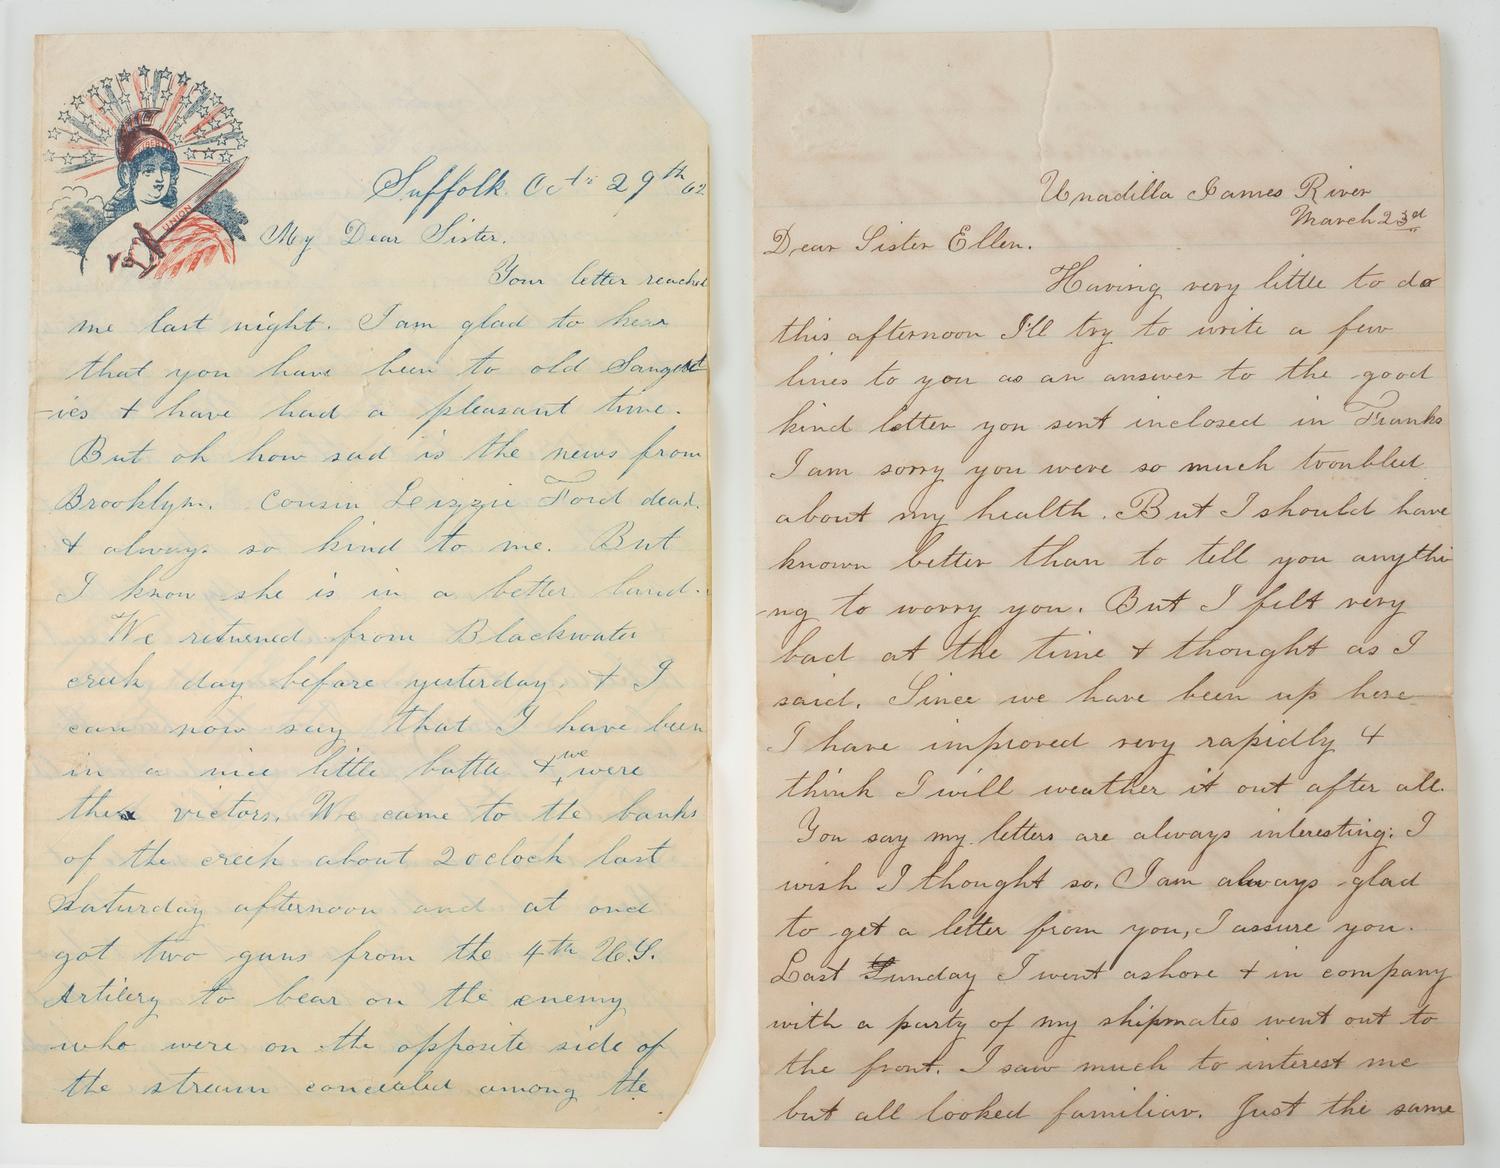 LIBERTY
UNION
Suffolk Oct: 29th 62
My Dear Sister.
Your letter reached
me last night. I am glad to hear
that you have been to old Saugat
-ies & have had a pleasant time.
But oh how sad is the news from
Brooklyn. Cousin Leizzie Ford dead.
& always so kind to me. But
I know she is in a better land.
We returned from Blackwater
creek day before yesterday. & I
can now say that I have been
in a nice little battle & we were
the victors. We came to the banks
of the creek about 2 oclock last
Saturday afternoon and at ond
got two guns from the 4th U.S.
Artilery to bear on the enemy
who were on the opposite side of
the stream concealed among the
Unadilla James River
March 23d
Dear Sister Ellen.
Having very little to do
this afternoon I'll try to write a few
lines to you as an answer to the good
kind letter you sent inclosed in Franks
I am sorry you were so much troubled
about my health. But I should have
known better than to tell you anythi
-ng to worry you. But I felt very
bad at the time & thought as I
said. Since we have been up here
I have improved very rapidly &
think I will weather it out after all.
You say my letters are always interesting; I
wish I thought so. I am always glad
to get a letter from you, I assure you.
Last Sunday I went ashore & in company
with a party of my shipmates went out to
the front. I saw much to interest me
but all looked familiar. Just the same